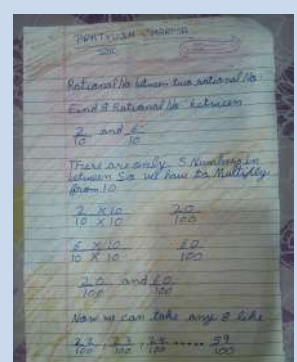 PRATYUSH SHARMA
Rational No between two rational No.
Find 8 Rational No between
2/10 and 6/10
There are only 5 Numbers in
between So we have to Multiply
from 10
2 × 10 / 10 × 10 20/100
6 × 10 / 10 × 10 60/100
20/100 and 60/100
Now we can take any 8 like
22/100, 23/100, 24/100 ..... 59/100